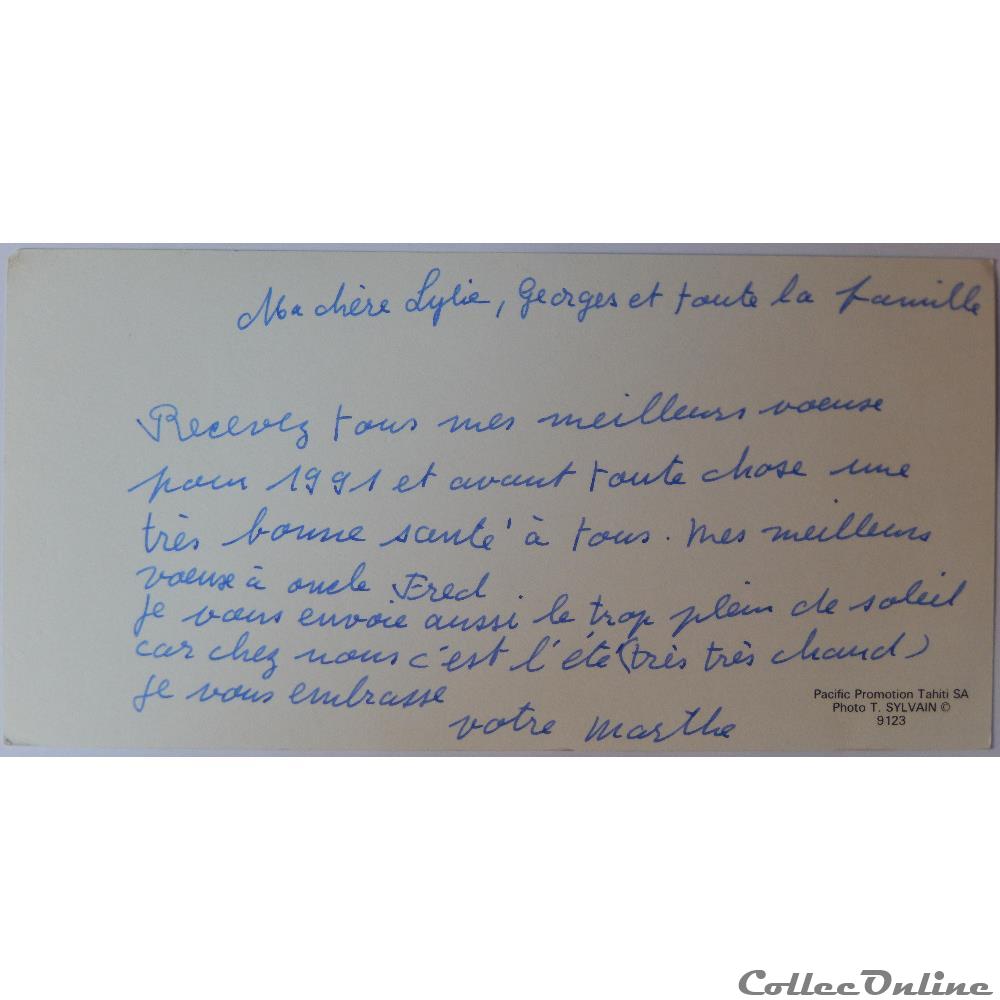 Ma chère Lylie, Georges et toute la famille
Recevez tous mes meilleurs voeuxe
pour 1991 et avant toute chose une
très bonne santé à tous. Mes meilleurs
voeuxe à oncle Fred
Je vous envoie aussi le trop plein de soleil
car chez nous c'est l'été (très très chaud)
Je vous embrasse
votre Marthe
Pacific Promotion Tahiti SA
Photo T. SYLVAIN ©
9123
CollecOnline